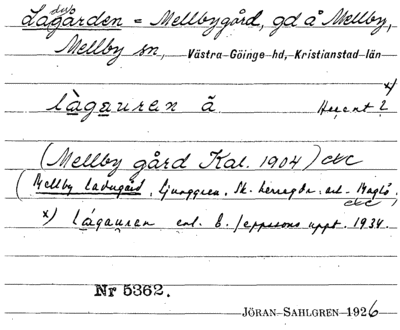 Lagården = Mellbygård, gd å Mellby,
Mellby sn, Västra Göinge hd, Kristianstad län
x)
làgauren ā
(Mellby gård Kat. 1904) etc
(Mellby Ladugård, Ljunggren, Sk. herregdr.
etc)
x) lágauren enl. B. Jeppssons uppt. 1934.
Nr 5362.
JÖRAN SAHLGREN 1926